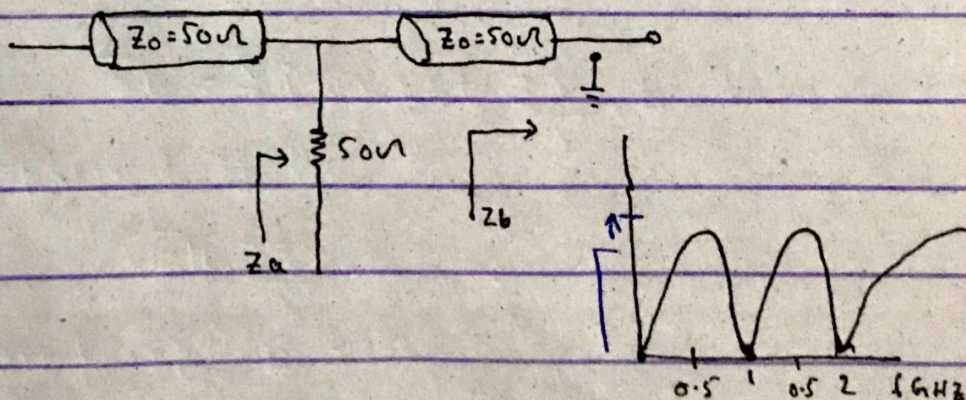 Z0=50Ω Z0=50Ω
50Ω
Zb
Za
0.5 1 0.5 2 f GHZ